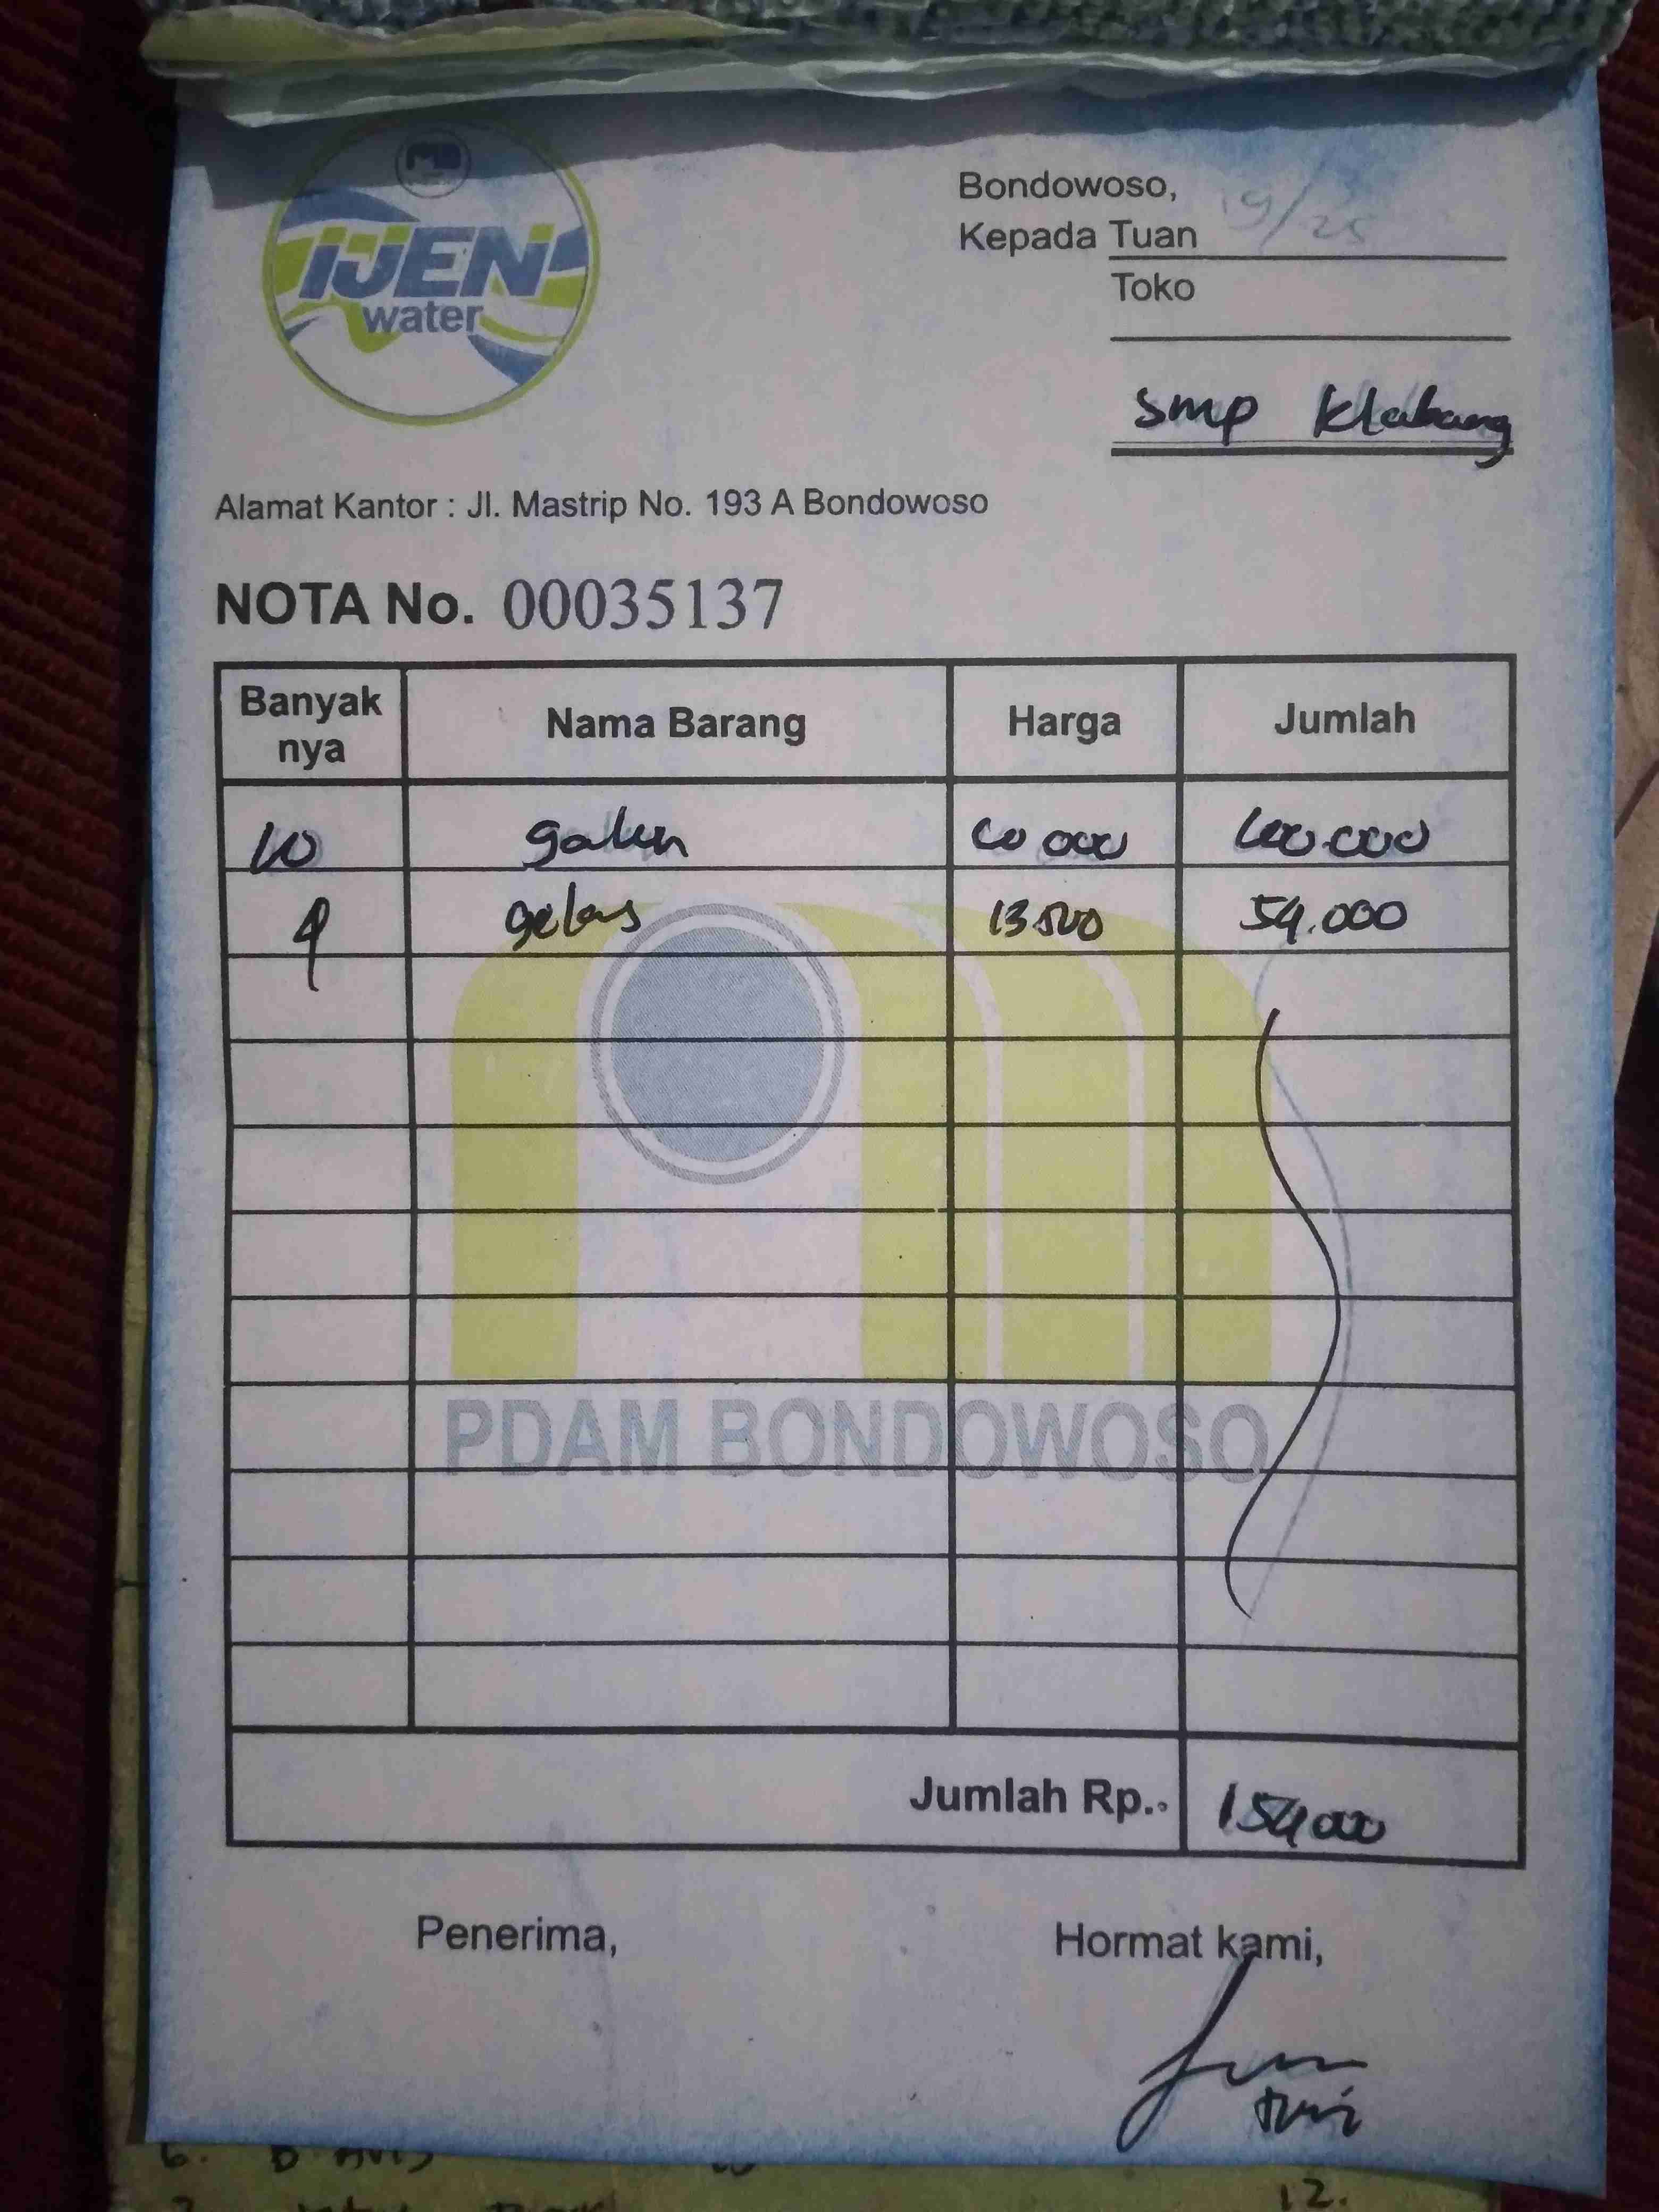 MB
IJEN
water
Bondowoso, 19/25
Kepada Tuan
Toko
smp Klabang
Alamat Kantor : Jl. Mastrip No. 193 A Bondowoso
NOTA No. 00035137
Banyak nya Nama Barang Harga Jumlah
10 galon 10 000 100.000
4 gelas 13500 54.000
PDAM BONDOWOSO
Jumlah Rp.. 154000
Penerima, Hormat kami,
6.
12.